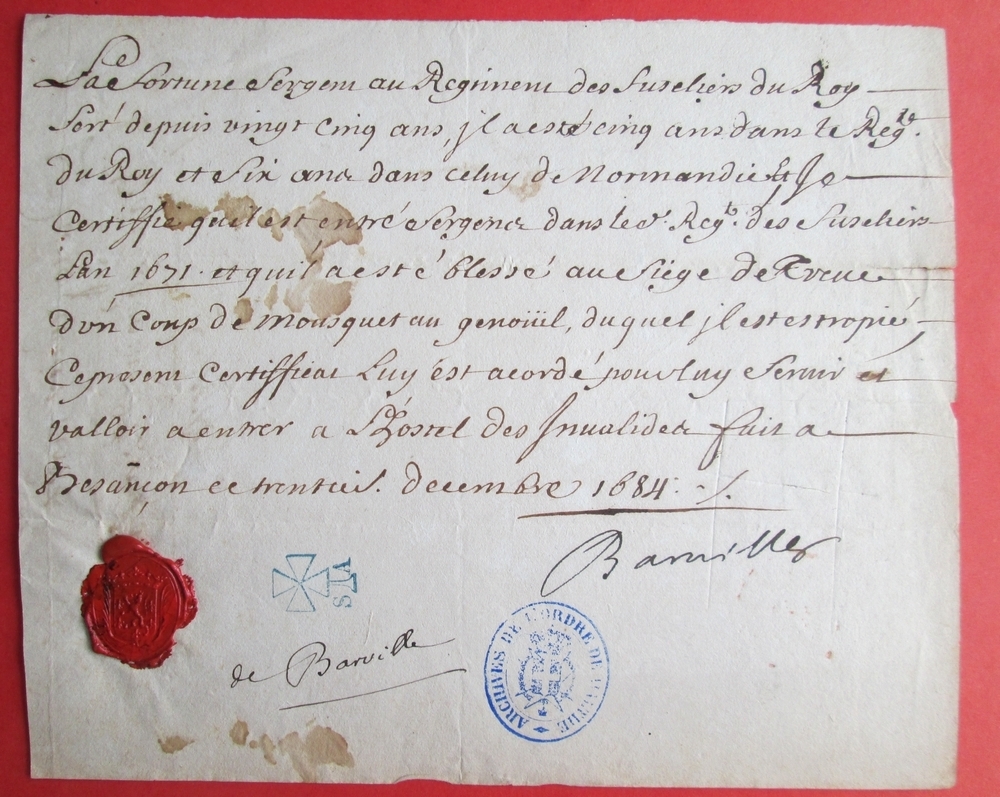 La Fortune Sergent au Regiment des Fuseliers du Roy
Sert depuis vingt cinq ans, jl a esté cinq ans dans le Reg.t
du Roy et Six ans dans celuy de Normandie Et Je
Certiffie qu'il est entré Sergent dans le d. Reg.t des Fuseliers
Lan 1671. et quil a esté blessé au Siege de Treve
d'vn Coup de Mousquet au genoüil, duquel jl est estropié,
Ce present Certifficat Luy est acordé pour luy Servir et
valloir a entrer a L'hostel des Jnvalides fait a
Besançon ce decembre 1684 ./.
Barville
STA
de Barville
ARCHIVES DE L'ORDRE DE MALTHE